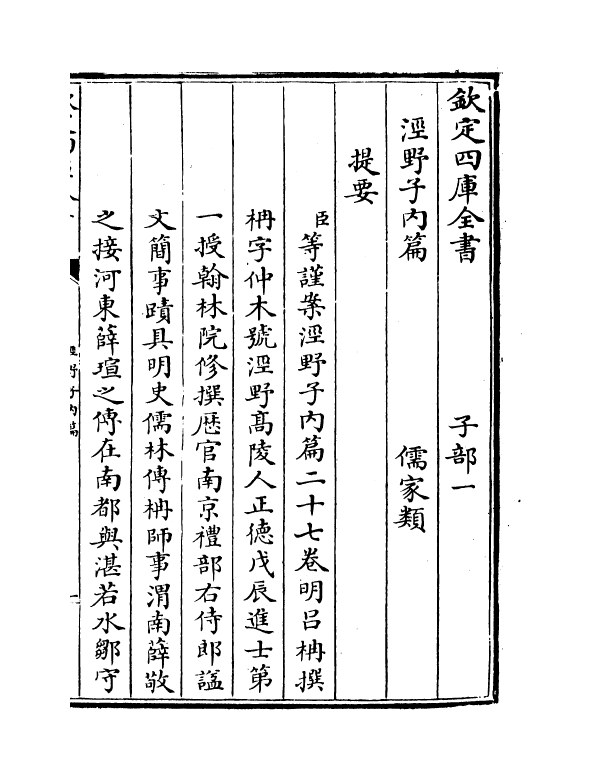 欽定四庫全書　子部一
涇野子內篇　儒家類
提要
臣等謹案涇野子內篇二十七卷明呂柟撰
柟字仲木號涇野髙陵人正德戊辰進士第
一授翰林院修撰歷官南京禮部右侍郎諡
文簡事蹟具明史儒林傳柟師事渭南薛敬
之接河東薛瑄之傳在南都與湛若水鄒守
涇野子內篇